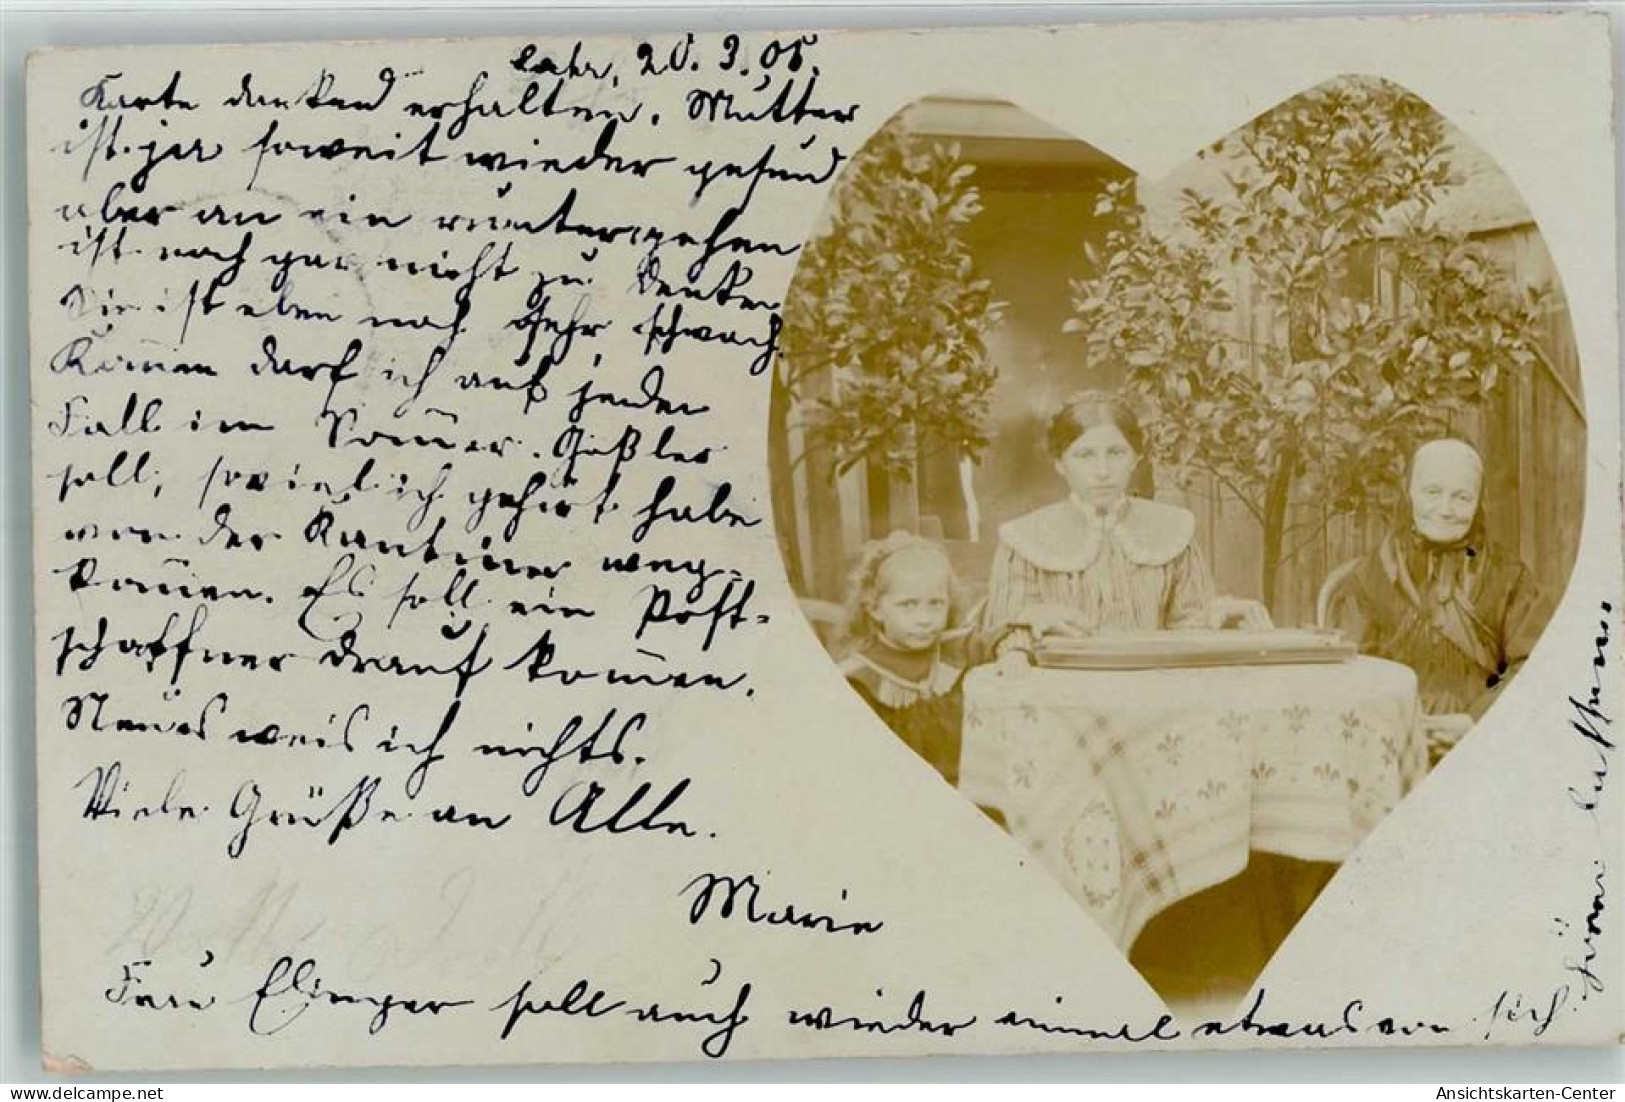 Lahr, 20.3.05.
Karte dankend erhalten. Mutter
ist ja soweit wieder gesund
aber an ein runtergehen
ist noch gar nicht zu denken
Sie ist eben noch sehr schwach.
Kom̅en darf ich auf jeden
Fall im Som̅er. Geßler
soll, soviel ich gehört habe
von der Kantine weg-
kom̅en. Es soll ein Post-
schaffner drauf kom̅en.
Neues weis ich nichts.
Viele Grüße an Alle.
Marie
Frau Elinger soll auch wieder einmal etwas von sich
hören lassen.
AnsichtsKarten-Center